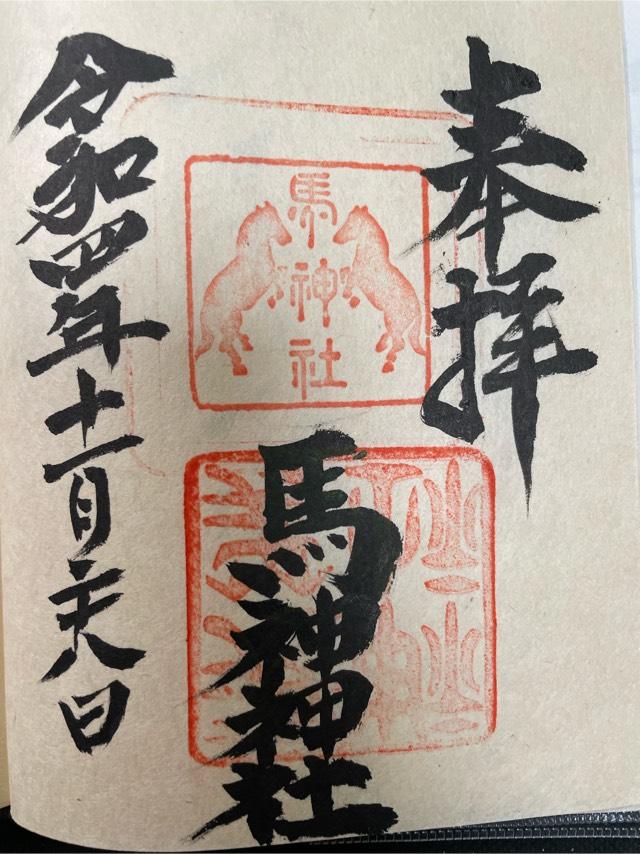 奉拝
馬神社
馬神神社
令和四年十一月二十八日